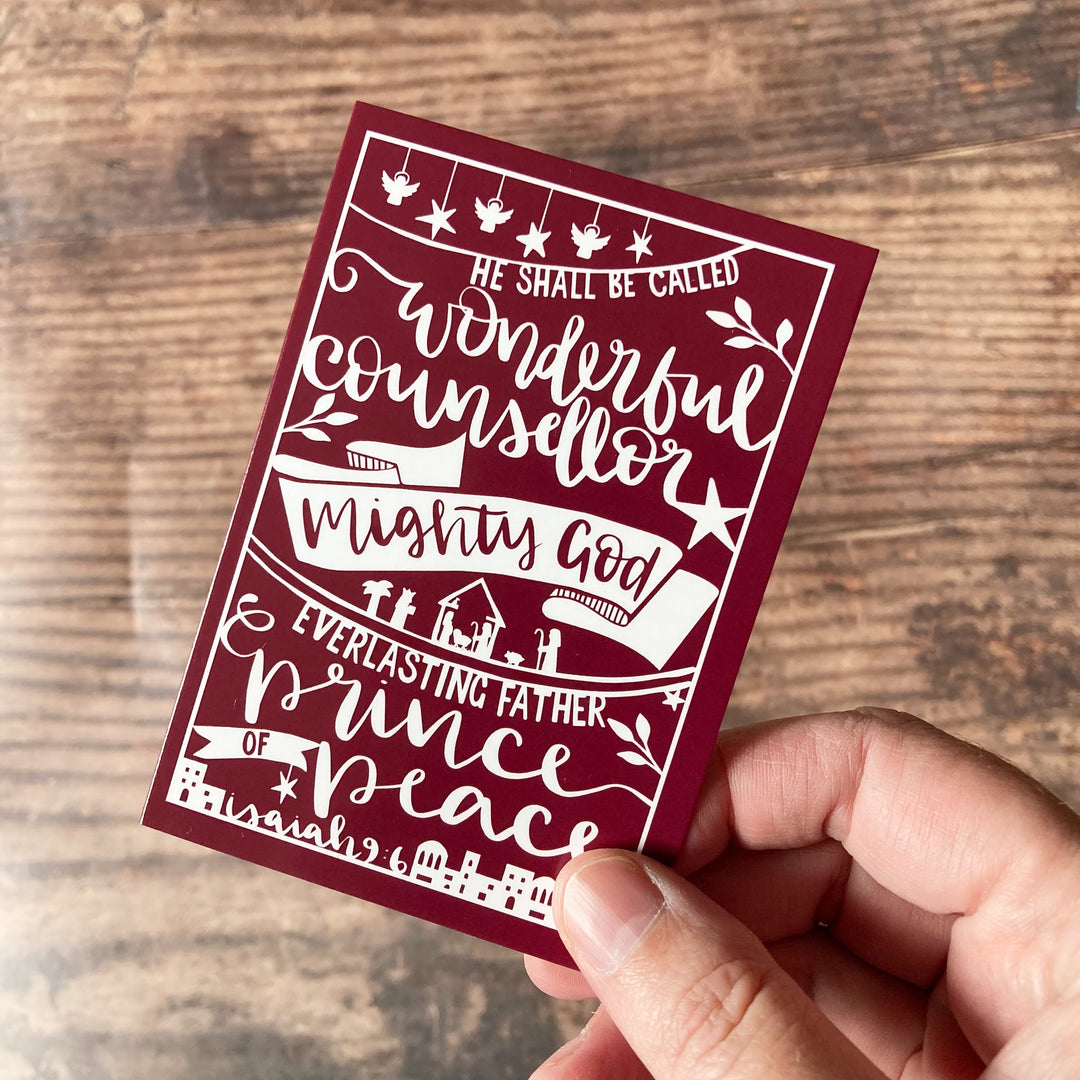 HE SHALL BE CALLED
Wonderful
Counsellor
Mighty God
EVERLASTING FATHER
& Prince
OF Peace
isaiah 9:6